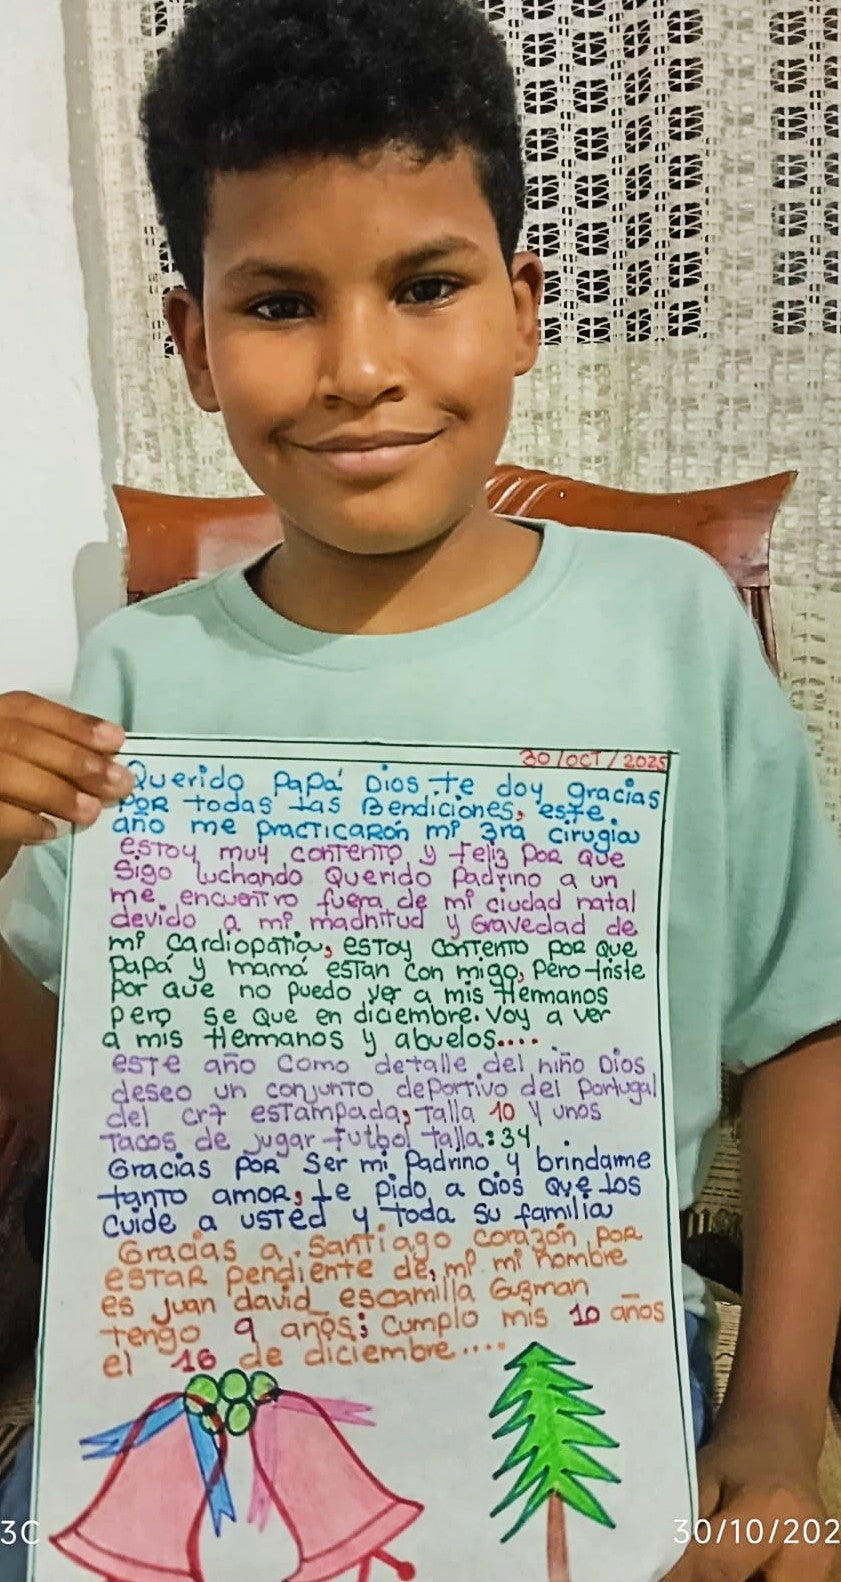 30/OCT/2025
Querido Papá Dios te doy gracias
POR todas las Bendiciones, este
año me practicaron mi 3ra cirugia
estoy muy contento y feliz por que
Sigo luchando Querido Padrino a un
me encuentro fuera de mi ciudad natal
devido a mi madnitud y Gravedad de
mi cardiopatia, estoy contento por que
Papá y mamá estan con migo, pero triste
por que no puedo ver a mis Hermanos
pero se que en diciembre. Voy a ver
a mis Hermanos y abuelos....
este año como detalle del niño Dios
deseo un conjunto deportivo del Portugal
del cr7 estampada, talla 10 y unos
Tacos de jugar futbol talla:34
Gracias por ser mi Padrino y brindarme
tanto amor, te pido a Dios que los
cuide a usted y toda su familia
Gracias a Santiago corazón por
estar pendiente de mi mi nombre
es juan david escamilla Guzman
tengo 9 años; cumplo mis 10 años
el 16 de diciembre....
3C
30/10/202